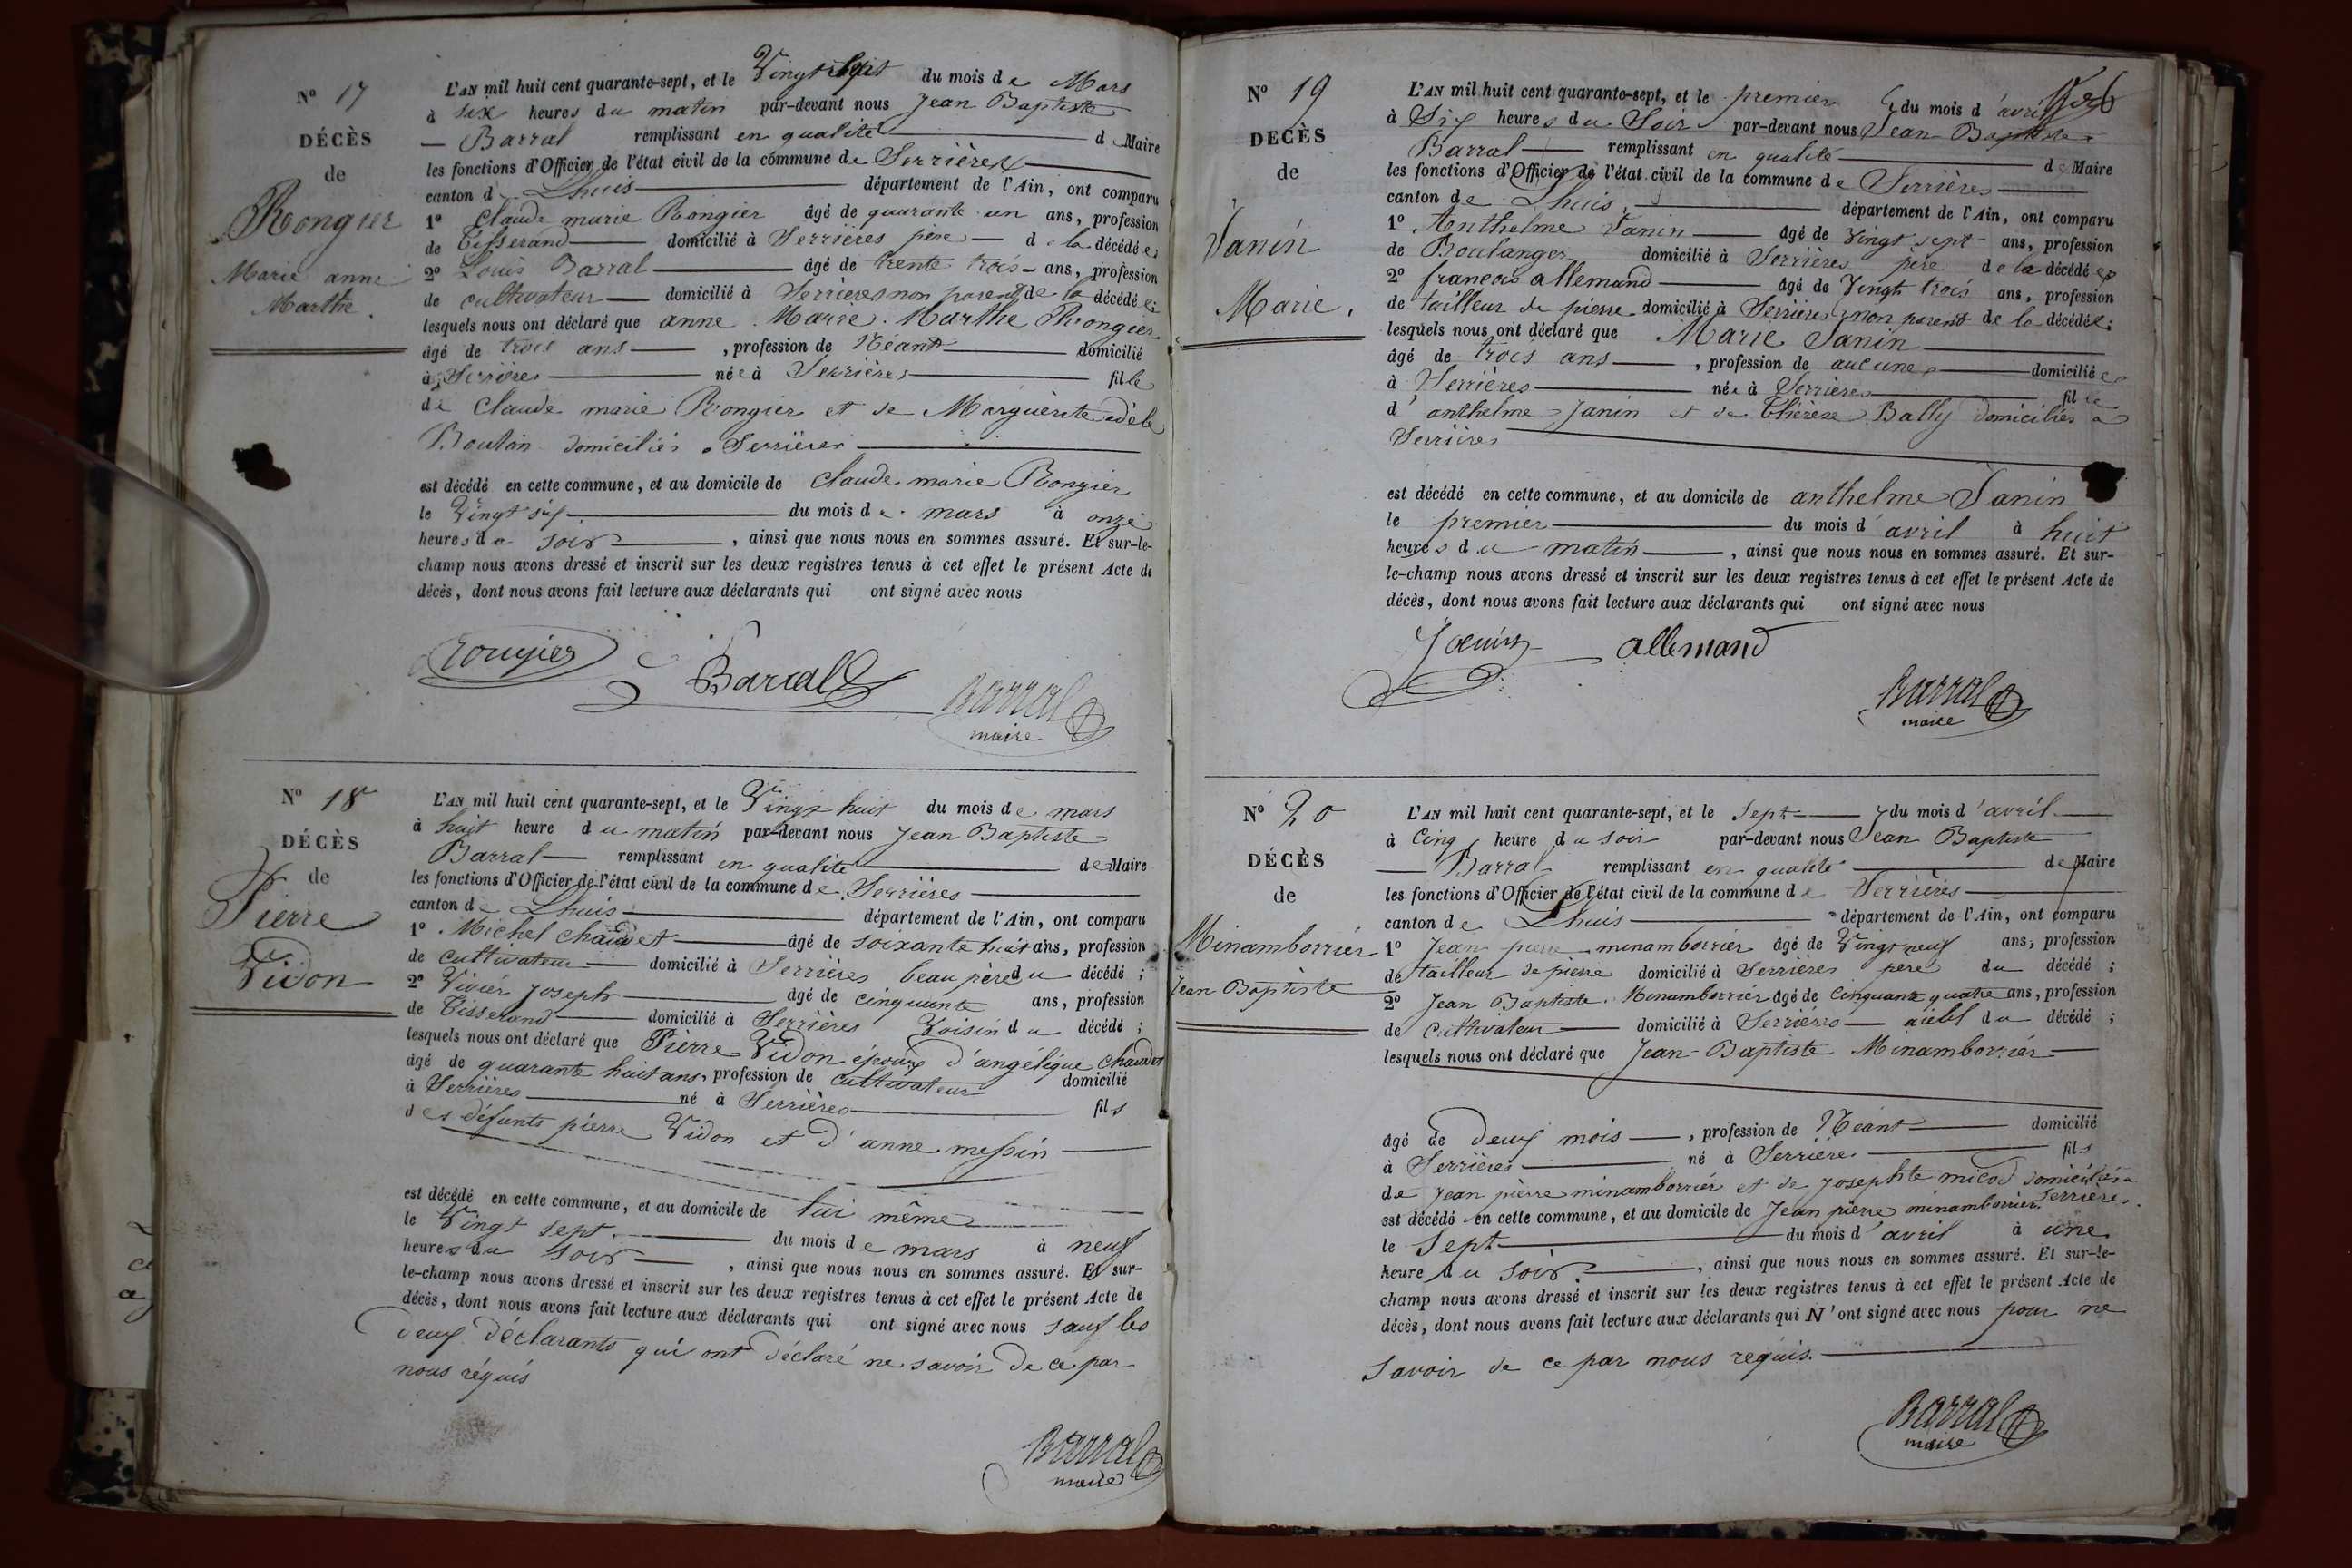 N° 17
DÉCÈS
de
Rongier
Marie anne
Marthe.
L'AN mil huit cent quarante-sept, et le Vingt sept du mois de Mars
à six heures du matin par-devant nous Jean Baptiste
Barral remplissant en qualité de Maire
les fonctions d'Officier de l'état civil de la commune de Serrières
canton de Lhuis département de l'Ain, ont comparu
1° Claude marie Rongier âgé de quarante un ans, profession
de Tisserand domicilié à Serrières père de la décédée;
2° Louis Barral âgé de trente trois ans, profession
de cultivateur domicilié à Serrières non parent de la décédée;
lesquels nous ont déclaré que anne Marie Marthe Rongier
âgé de trois ans, profession de Néant domicilié
à Serrières née à Serrières fille
de Claude marie Rongier et de Marguerite adèle
Boutan domiciliés à Serrières
est décédé en cette commune, et au domicile de Claude marie Rongier
le Vingt six du mois de mars à onze
heures du soir, ainsi que nous nous en sommes assuré. Et sur-le-
champ nous avons dressé et inscrit sur les deux registres tenus à cet effet le présent Acte de
décès, dont nous avons fait lecture aux déclarants qui ont signé avec nous
rougier
Barral
Barral
maire
N° 18
DÉCÈS
de
Pierre
Vidon
L'AN mil huit cent quarante-sept, et le Vingt huit du mois de mars
à huit heure du matin par-devant nous Jean Baptiste
Barral remplissant en qualité de Maire
les fonctions d'Officier de l'état civil de la commune de Serrières
canton de Lhuis département de l'Ain, ont comparu
1° Michel âgé de soixante huit ans, profession
de cultivateur domicilié à Serrières beau père du décédé;
2° Vivier Joseph âgé de cinquante ans, profession
de Tisserand domicilié à Serrières Voisin du décédé;
lesquels nous ont déclaré que Pierre Vidon époux d'angélique
âgé de quarante huit ans, profession de cultivateur domicilié
à Serrières né à Serrières fils
des défunts pierre Vidon et d'anne messin
est décédé en cette commune, et au domicile de lui même
le Vingt sept du mois de mars à neuf
heures du soir, ainsi que nous nous en sommes assuré. Et sur-
le-champ nous avons dressé et inscrit sur les deux registres tenus à cet effet le présent Acte de
décès, dont nous avons fait lecture aux déclarants qui ont signé avec nous sauf les
deux déclarants qui ont déclaré ne savoir de ce par
nous réquis
Barral
maire
N° 19
DÉCÈS
de
Janin
Marie,
L'AN mil huit cent quarante-sept, et le premier du mois d'avril
à Six heures du Soir par-devant nous Jean Baptiste
Barral remplissant en qualité de Maire
les fonctions d'Officier de l'état civil de la commune de Serrières
canton de Lhuis département de l'Ain, ont comparu
1° Anthelme Janin âgé de Vingt sept ans, profession
de Boulanger domicilié à Serrières père de la décédée
2° françois allemand âgé de Vingt trois ans, profession
de tailleur de pierre domicilié à Serrières non parent de la décédée;
lesquels nous ont déclaré que Marie Janin
âgé de trois ans, profession de aucune domiciliée
à Serrières née à Serrières fille
d'anthelme Janin et de Thérèse Bally domiciliés à
Serrières
est décédé en cette commune, et au domicile de anthelme Janin
le premier du mois d'avril à huit
heures du matin, ainsi que nous nous en sommes assuré. Et sur-
le-champ nous avons dressé et inscrit sur les deux registres tenus à cet effet le présent Acte de
décès, dont nous avons fait lecture aux déclarants qui ont signé avec nous
Janin allemand
Barral
maire
N° 20
DÉCÈS
de
Minamborrier
Jean Baptiste
L'AN mil huit cent quarante-sept, et le Sept du mois d'avril
à Cinq heure du soir par-devant nous Jean Baptiste
Barral remplissant en qualité de Maire
les fonctions d'Officier de l'état civil de la commune de Serrières
canton de Lhuis département de l'Ain, ont comparu
1° Jean pierre minamborrier âgé de Vingt neuf ans, profession
de tailleur de pierre domicilié à Serrières père du décédé;
2° Jean Baptiste Minamborrier âgé de Cinquante quatre ans, profession
de Cultivateur domicilié à Serrières aieul du décédé;
lesquels nous ont déclaré que Jean-Baptiste Minamborrier
âgé de deux mois, profession de Néant domicilié
à Serrières né à Serrières fils
de Jean pierre minamborrier et de Josephte micod domiciliés à
Serrières.
est décédé en cette commune, et au domicile de Jean pierre minamborrier
le Sept du mois d'avril à une
heure du soir, ainsi que nous nous en sommes assuré. Et sur-le-
champ nous avons dressé et inscrit sur les deux registres tenus à cet effet le présent Acte de
décès, dont nous avons fait lecture aux déclarants qui N'ont signé avec nous pour ne
savoir de ce par nous requis.
Barral
maire